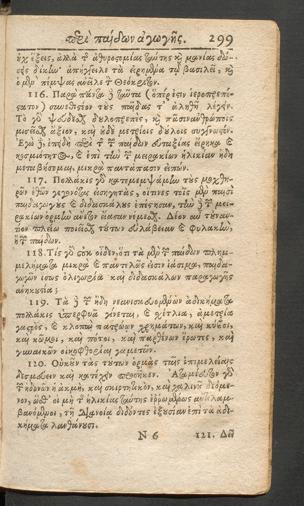 περὶ παίδων ἀγωγῆς. 299
οὐχ ἕξεις, ἀλλὰ τῆς ἀθυροστομίας ταύτης καὶ μανίας δώ-
σεις δίκην. ἀπήγγειλε τὰ εἰρημένα τῷ βασιλεῖ, καὶ
ὁ μὲν πέμψας ἀνεῖλε τὸν Θεόκριτον.
116. Παρὰ πάντα δὲ ταῦτα (ὅπερ ἐστὶν ἱεροπρεπέ-
στατον) συνεθιστέον τοὺς παῖδας τῷ ἀληθῆ λέγειν.
Τὸ γὰρ ψεύδεσθαι δουλοπρεπὲς, καὶ πᾶσιν ἀνθρώποις
μισεῖσθαι ἄξιον, καὶ οὐδὲ μετρίοις δούλοις συγγνωστόν.
Ἐγὼ δὲ, ἐπειδὴ περὶ τῆς τῶν παίδων εὐταξίας εἴρηκα καὶ
κοσμιότητος, καὶ ἐπὶ τὴν τῶν μειρακίων ἡλικίαν ἤδη
μεταβήσομαι, μικρὰ παντάπασιν εἰπών.
117. Πολλάκις γὰρ κατεμεμψάμην τοὺς μοχθη-
ρῶν ἐθῶν γεγονότας εἰσηγητὰς, οἵτινες τοῖς μὲν παισὶ
παιδαγωγοὺς καὶ διδασκάλους ἐπέστησαν, τὴν δὲ τῶν μει-
ρακίων ὁρμὴν ἄνετον εἴασαν νέμεσθαι. Δέον αὖ τοὐναν-
τίον πλείω ποιεῖσθαι τούτων εὐλάβειαν καὶ φυλακὴν,
ἢ τῶν παίδων.
118. Τίς γὰρ οὐκ οἶδεν, ὅτι τὰ μὲν τῶν παίδων πλημ-
μελήματα μικρὰ καὶ παντελῶς εἰσιν ἰάσιμα, παιδα-
γωγῶν ἴσως ὀλιγωρία καὶ διδασκάλων παραγωγῆς
ἀνηκουστία;
119. Τὰ δὲ τῶν ἤδη νεανισκευομένων ἀδικήματα
πολλάκις ὑπερφυᾶ γίνεται, καὶ σχέτλια, ἀμετρία
γαστρὸς, καὶ κλοπαὶ πατρῴων χρημάτων, καὶ κύβοι,
καὶ κῶμοι, καὶ πότοι, καὶ παρθένων ἔρωτες, καὶ
γυναικῶν οἰκοφθορίαι γαμετῶν.
120. Οὐκοῦν τὰς τούτων ὁρμὰς ταῖς ἐπιμελείαις
δεσμεύειν καὶ κατέχειν προσῆκεν. γὰρ
τῶν ἡδονῶν ἡ ἀκμὴ, καὶ σκιρτητικὸν, καὶ χαλινοῦ δεόμε-
νον, ὥσθ᾽ οἱ μὴ τῆς ἡλικίας ταύτης ἐρρωμένως ἀντιλαμ-
βανόμενοι, τῇ διδόντες ἐξουσίαν ἐπὶ τὰ ἀδι-
κήματα λανθάνουσι.
N 6 121. Δεῖ